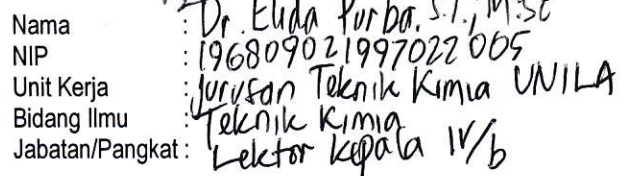 Nama : Dr. Elida Purba, S.T., M.Sc
NIP : 196809021997022005
Unit Kerja : Jurusan Teknik Kimia UNILA
Bidang Ilmu : Teknik Kimia
Jabatan/Pangkat : Lektor Kepala IV/b